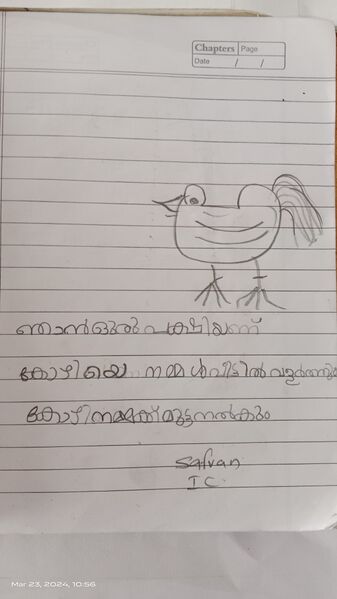 Chapters Page
Date / /
ഞാൻ ഒരു പക്ഷിയണ്
കോഴിയെ നമ്മൾ വീട്ടിൽ വളർത്തും
കോഴി നമുക്ക് മുട്ട നൽകും
Safvan
I C
Mar 23, 2024, 10:56